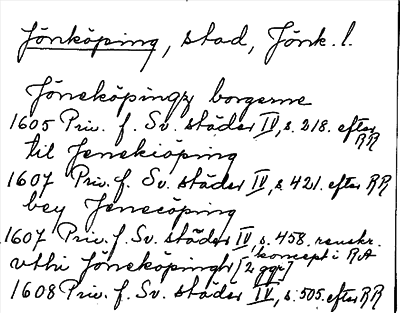 Jönköping, stad, Jönk. l.
Jöneköpings borgerne
1605 Priv. f. Sv. städer IV, s. 218. efter RR
til Jenekiöping
1607 Priv. f. Sv. städer IV, s 421. efter RR
bey Jenecöping
1607 Priv. f. Sv. städer IV, s. 458. renskr. koncept i RA
vthi Jöneköpingh [2 ggr]
1608 Priv. f. Sv. städer IV, s. 505. efter RR